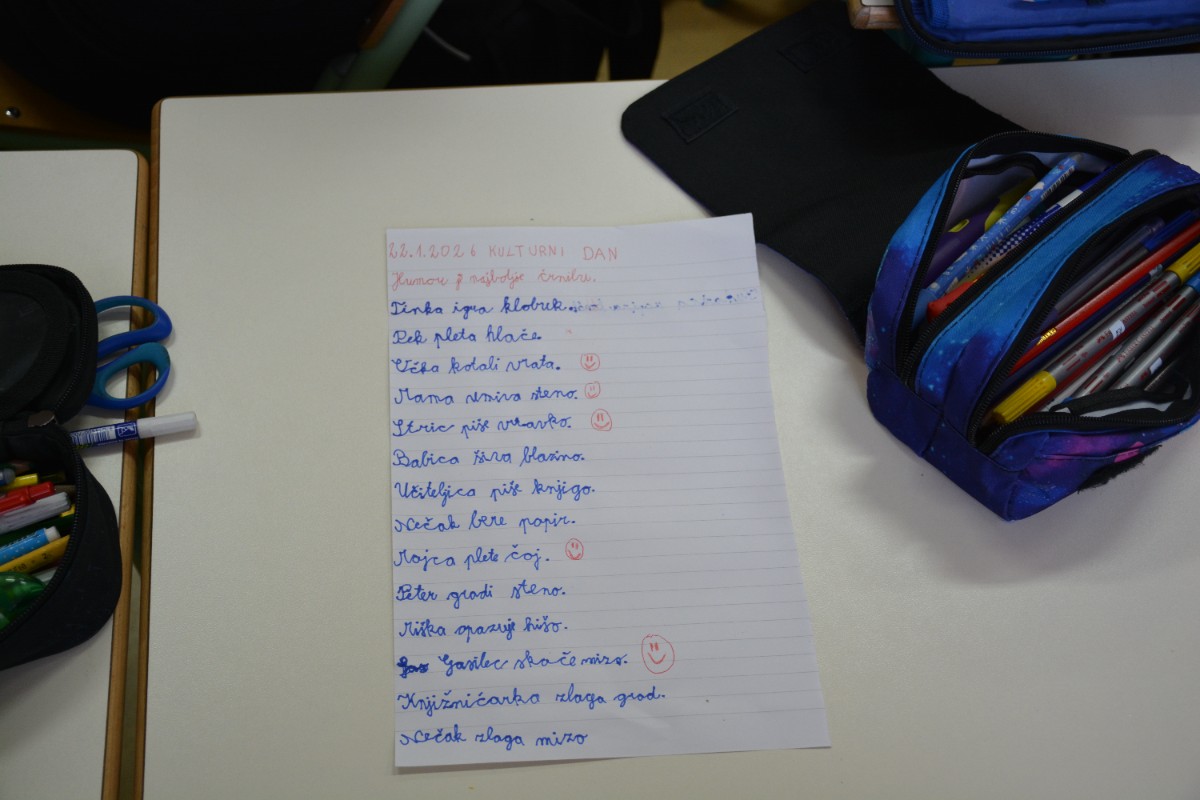 22.1.2026 KULTURNI DAN
Humor je najboljše črnilo.
Tinka igra klobuk.
Pek pleta hlače.
Učka kotali vrata.
Mama umiva steno.
Stric piše
Babica šiva blazino.
Učiteljica piše knjigo.
Nečak bere papir.
Mojca plete čaj.
Peter gradi steno.
Miška opazuje hišo.
Gasilec skače mizo.
Knjižničarka zlaga grad.
Nečak zlaga mizo